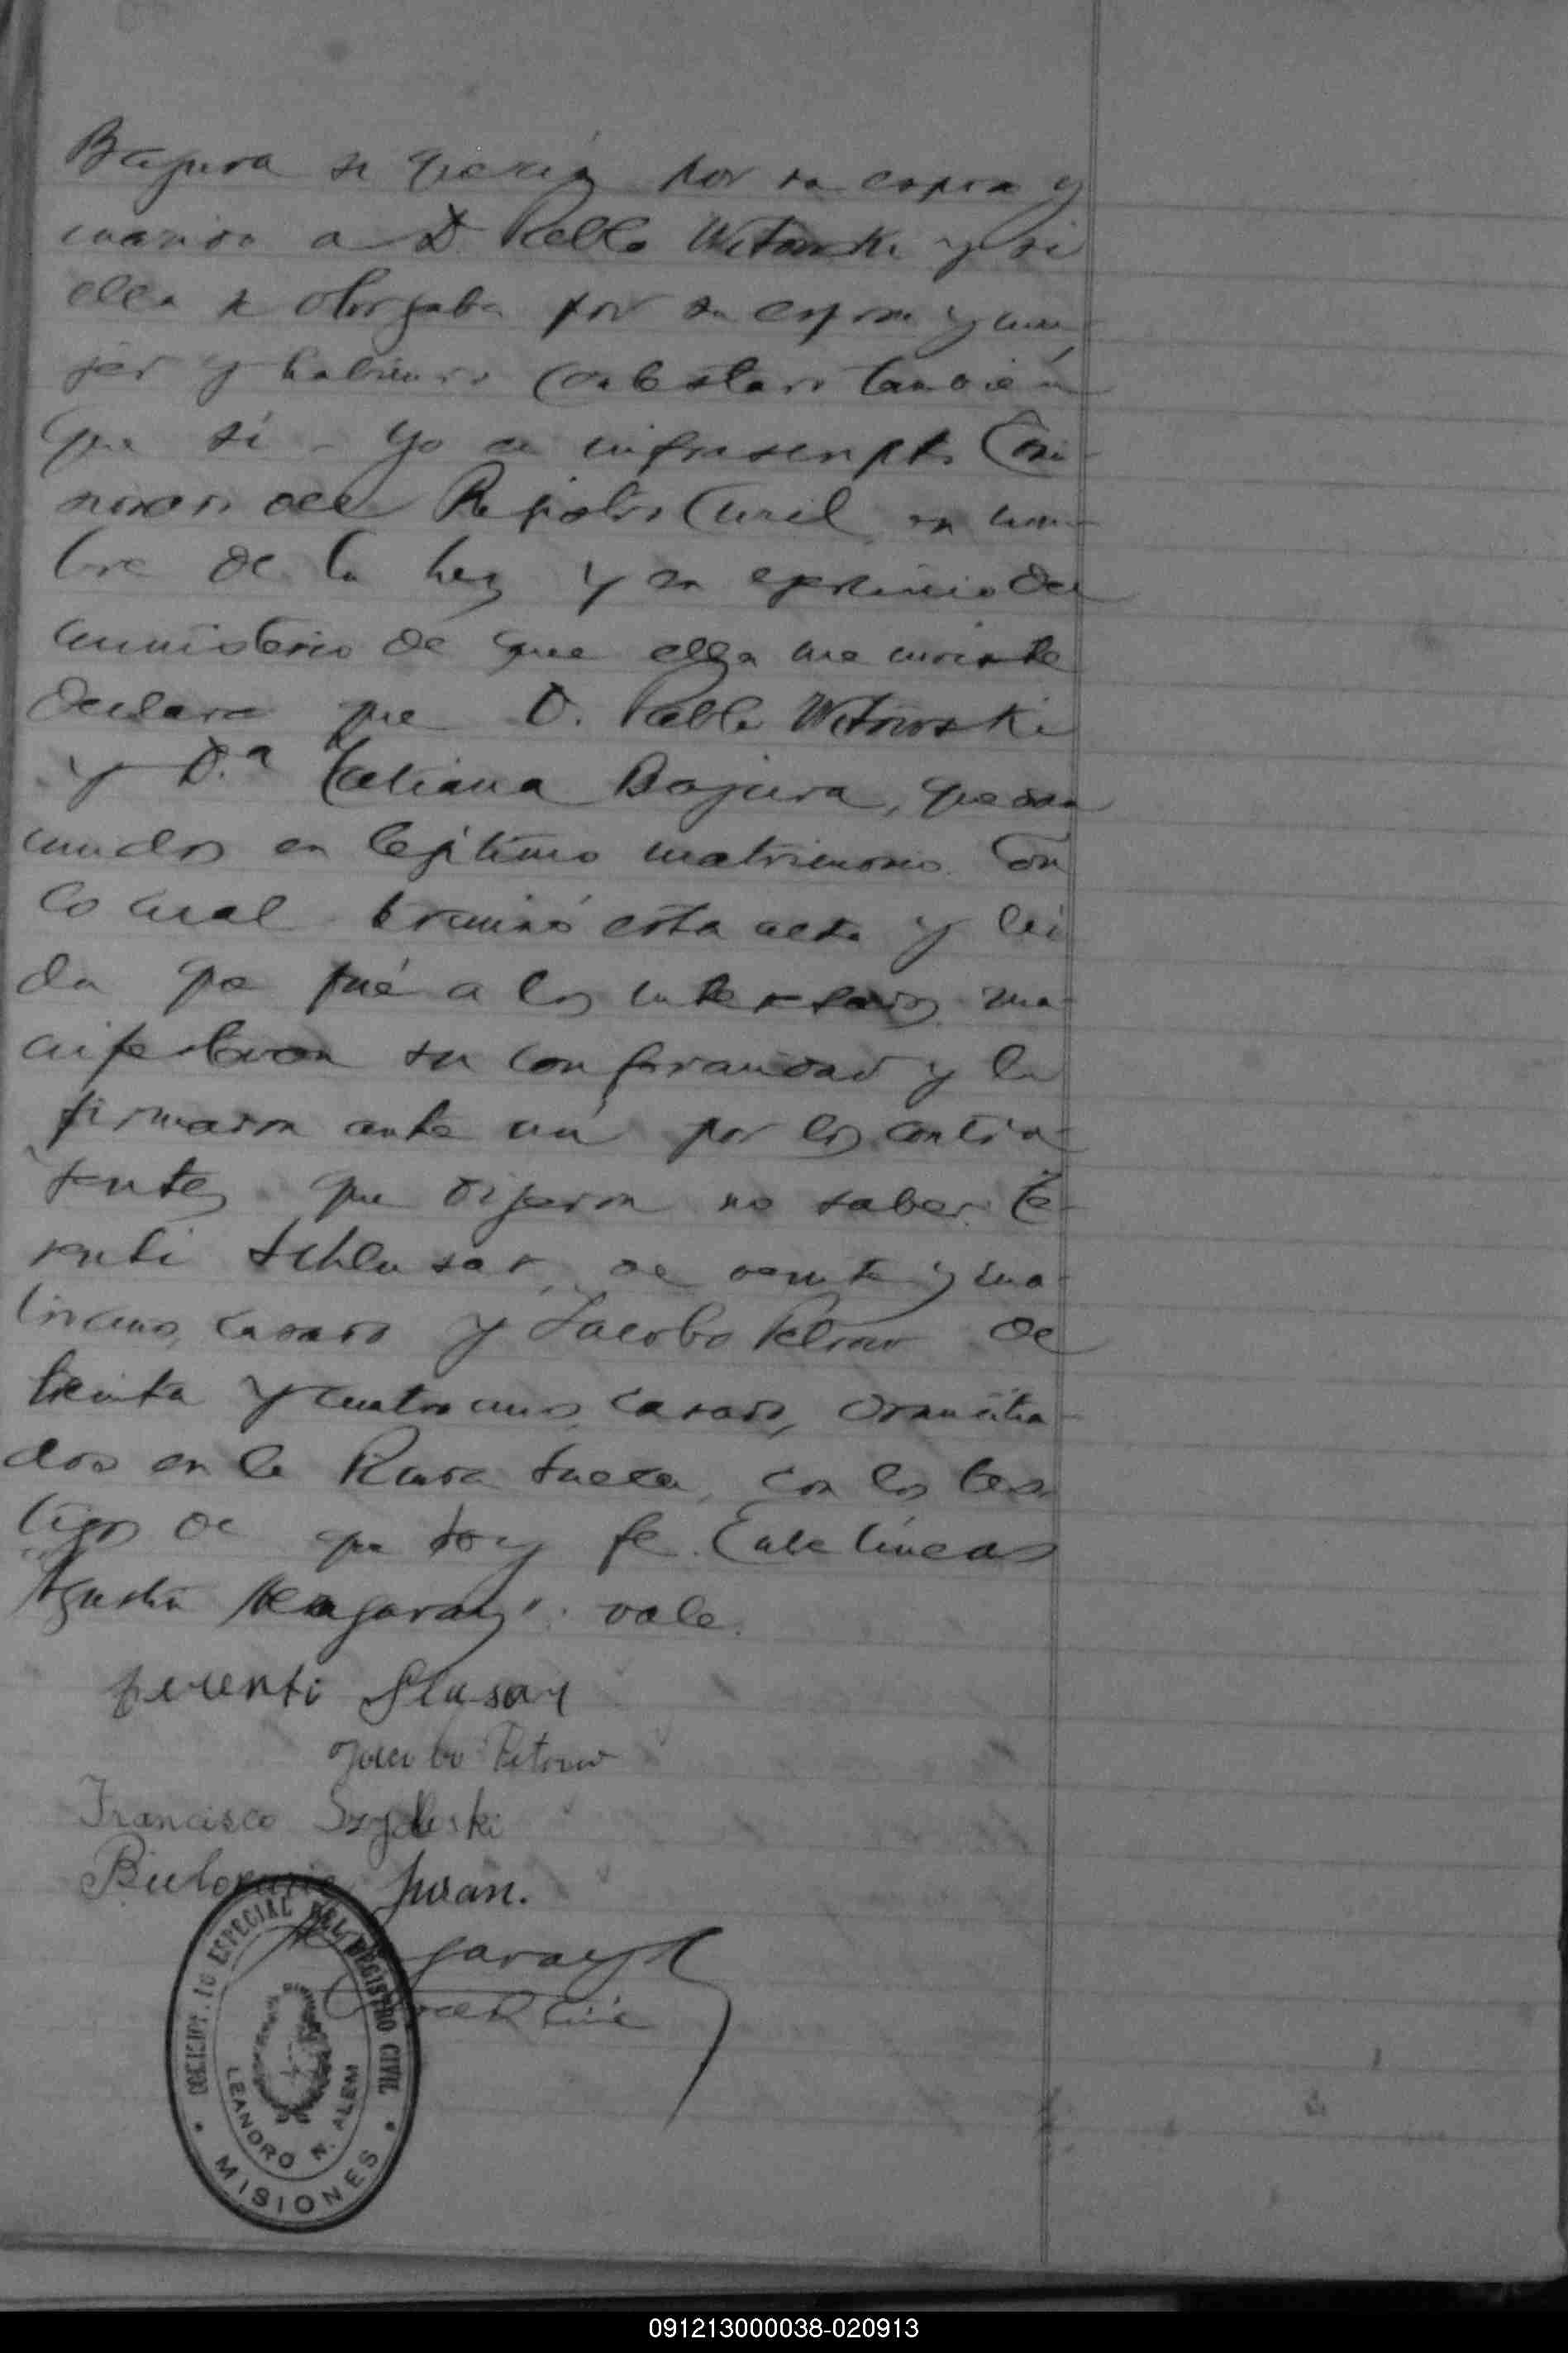 Bajura si quería por su esposo y
marido a D. Pablo Witowski y si
ella se otorgaba por su esposa y mu-
jer y habiendo contestado también
que sí - Yo el infrascripto Comi-
sionado del Registro Civil, en nom-
bre de la ley y en ejercicio del
ministerio de que ella me inviste
declaro que D. Pablo Witowski
y D.ª Tatiana Bajura, quedan
unidos en legítimo matrimonio. Con
lo cual terminó esta acta y leí-
da que fué a los interesados ma-
nifestaron su conformidad y la
firmaron ante mí por los contra-
yentes que dijeron no saber Te-
renti Schlusar, de veinte y cua-
tro años, casado y Jacobo Petrow de
treinta y cuatro años, casado, domicilia-
dos en la Picada Sueca, con los tes-
tigos de que doy fe. Entre líneas
"Agustín garay". vale.
Terenti Slusar
Jacobo Petrow
Francisco Szydloski
Juan.
garay
DEL REGISTRO CIVIL
ESPECIAL
LEANDRO N. ALEM
MISIONES
091213000038-020913